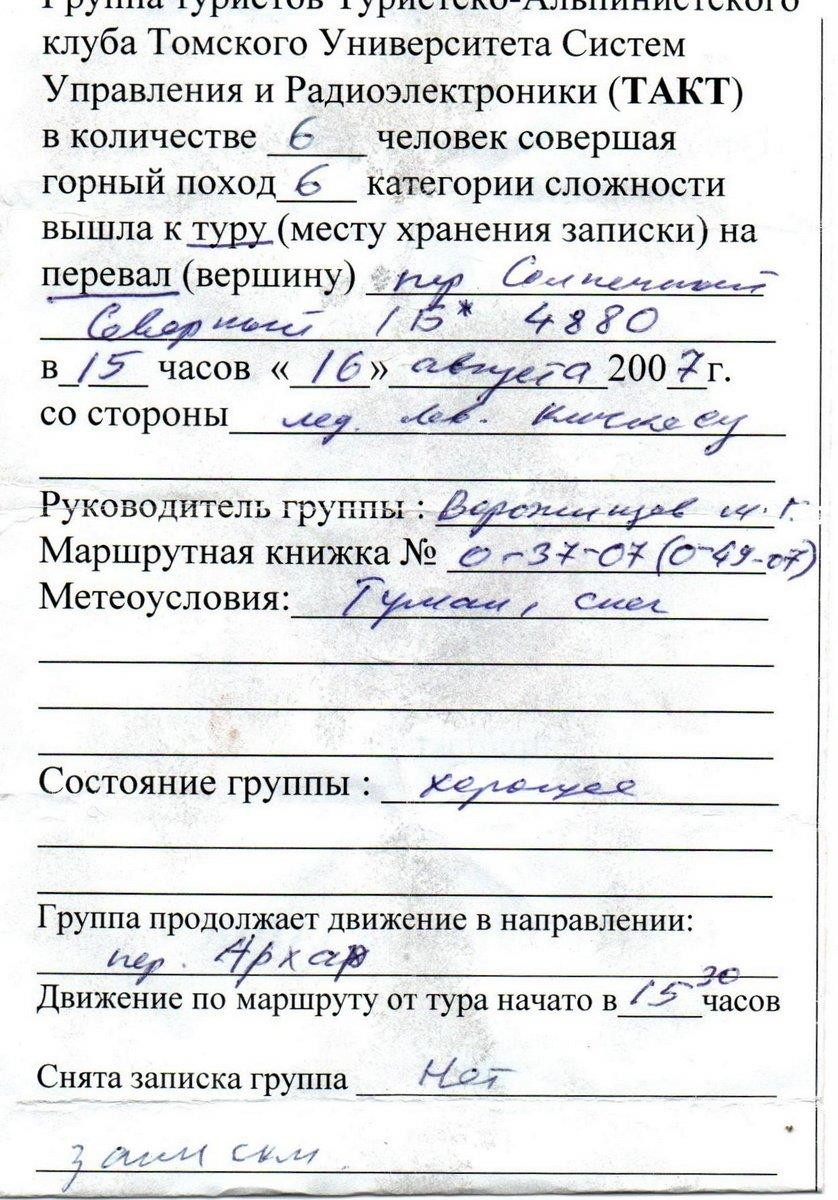 Группа туристов Туристско-Альпинистского
клуба Томского Университета Систем
Управления и Радиоэлектроники (ТАКТ)
в количестве 6 человек совершая
горный поход 6 категории сложности
вышла к туру (месту хранения записки) на
перевал (вершину) пер Солнечный
Северный 1Б* 4880
в 15 часов «16» августа 2007г.
со стороны лед. Лев. Кичкесу
Руководитель группы : Ворожищев М. Г.
Маршрутная книжка № 0-37-07 (0-49-07)
Метеоусловия: Туман, снег
Состояние группы : хорошее
Группа продолжает движение в направлении:
пер. Архар
Движение по маршруту от тура начато в 15 30 часов
Снята записка группа Нет
записки.